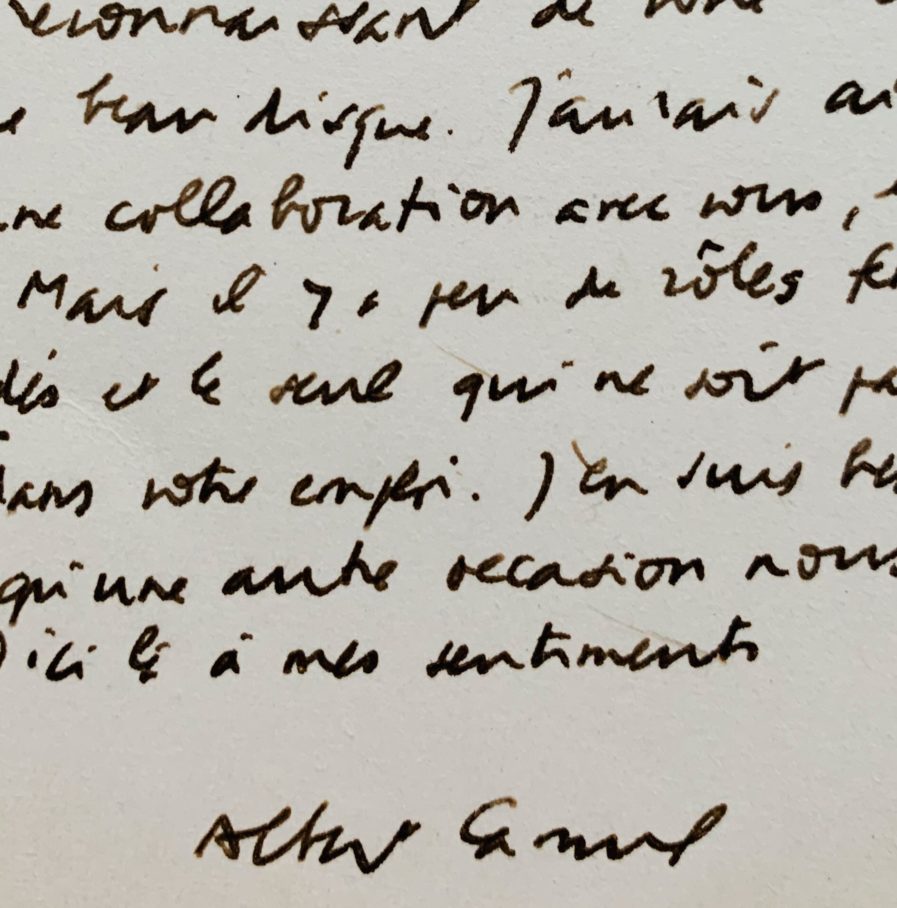 reconnaissant de votre
beau disque. J'aurais ai
une collaboration avec vous,
Mais il y a peu de rôles fé
dés et le seul qui ne soit pa
dans votre emploi. J'en suis
qu'une autre occasion nous
D'ici là à mes sentiments
Albert Camus